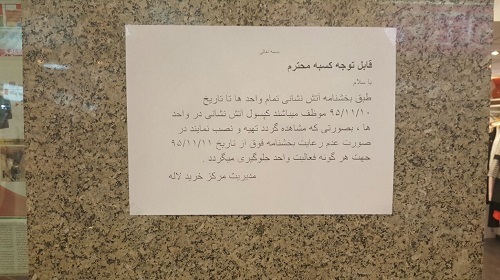 بسمه تعالی
قابل توجه کسبه محترم
با سلام
طبق بخشنامه اتش نشانی تمام واحد ها تا تاریخ
۹۵/۱۱/۱۰ موظف میباشند کپسول اتش نشانی در واحد
ها ، بصورتی که مشاهده گردد تهیه و نصب نمایند در
صورت عدم رعایت بخشنامه فوق از تاریخ ۹۵/۱۱/۱۱
جهت هر گونه فعالیت واحد جلوگیری میگردد .
مدیریت مرکز خرید لاله